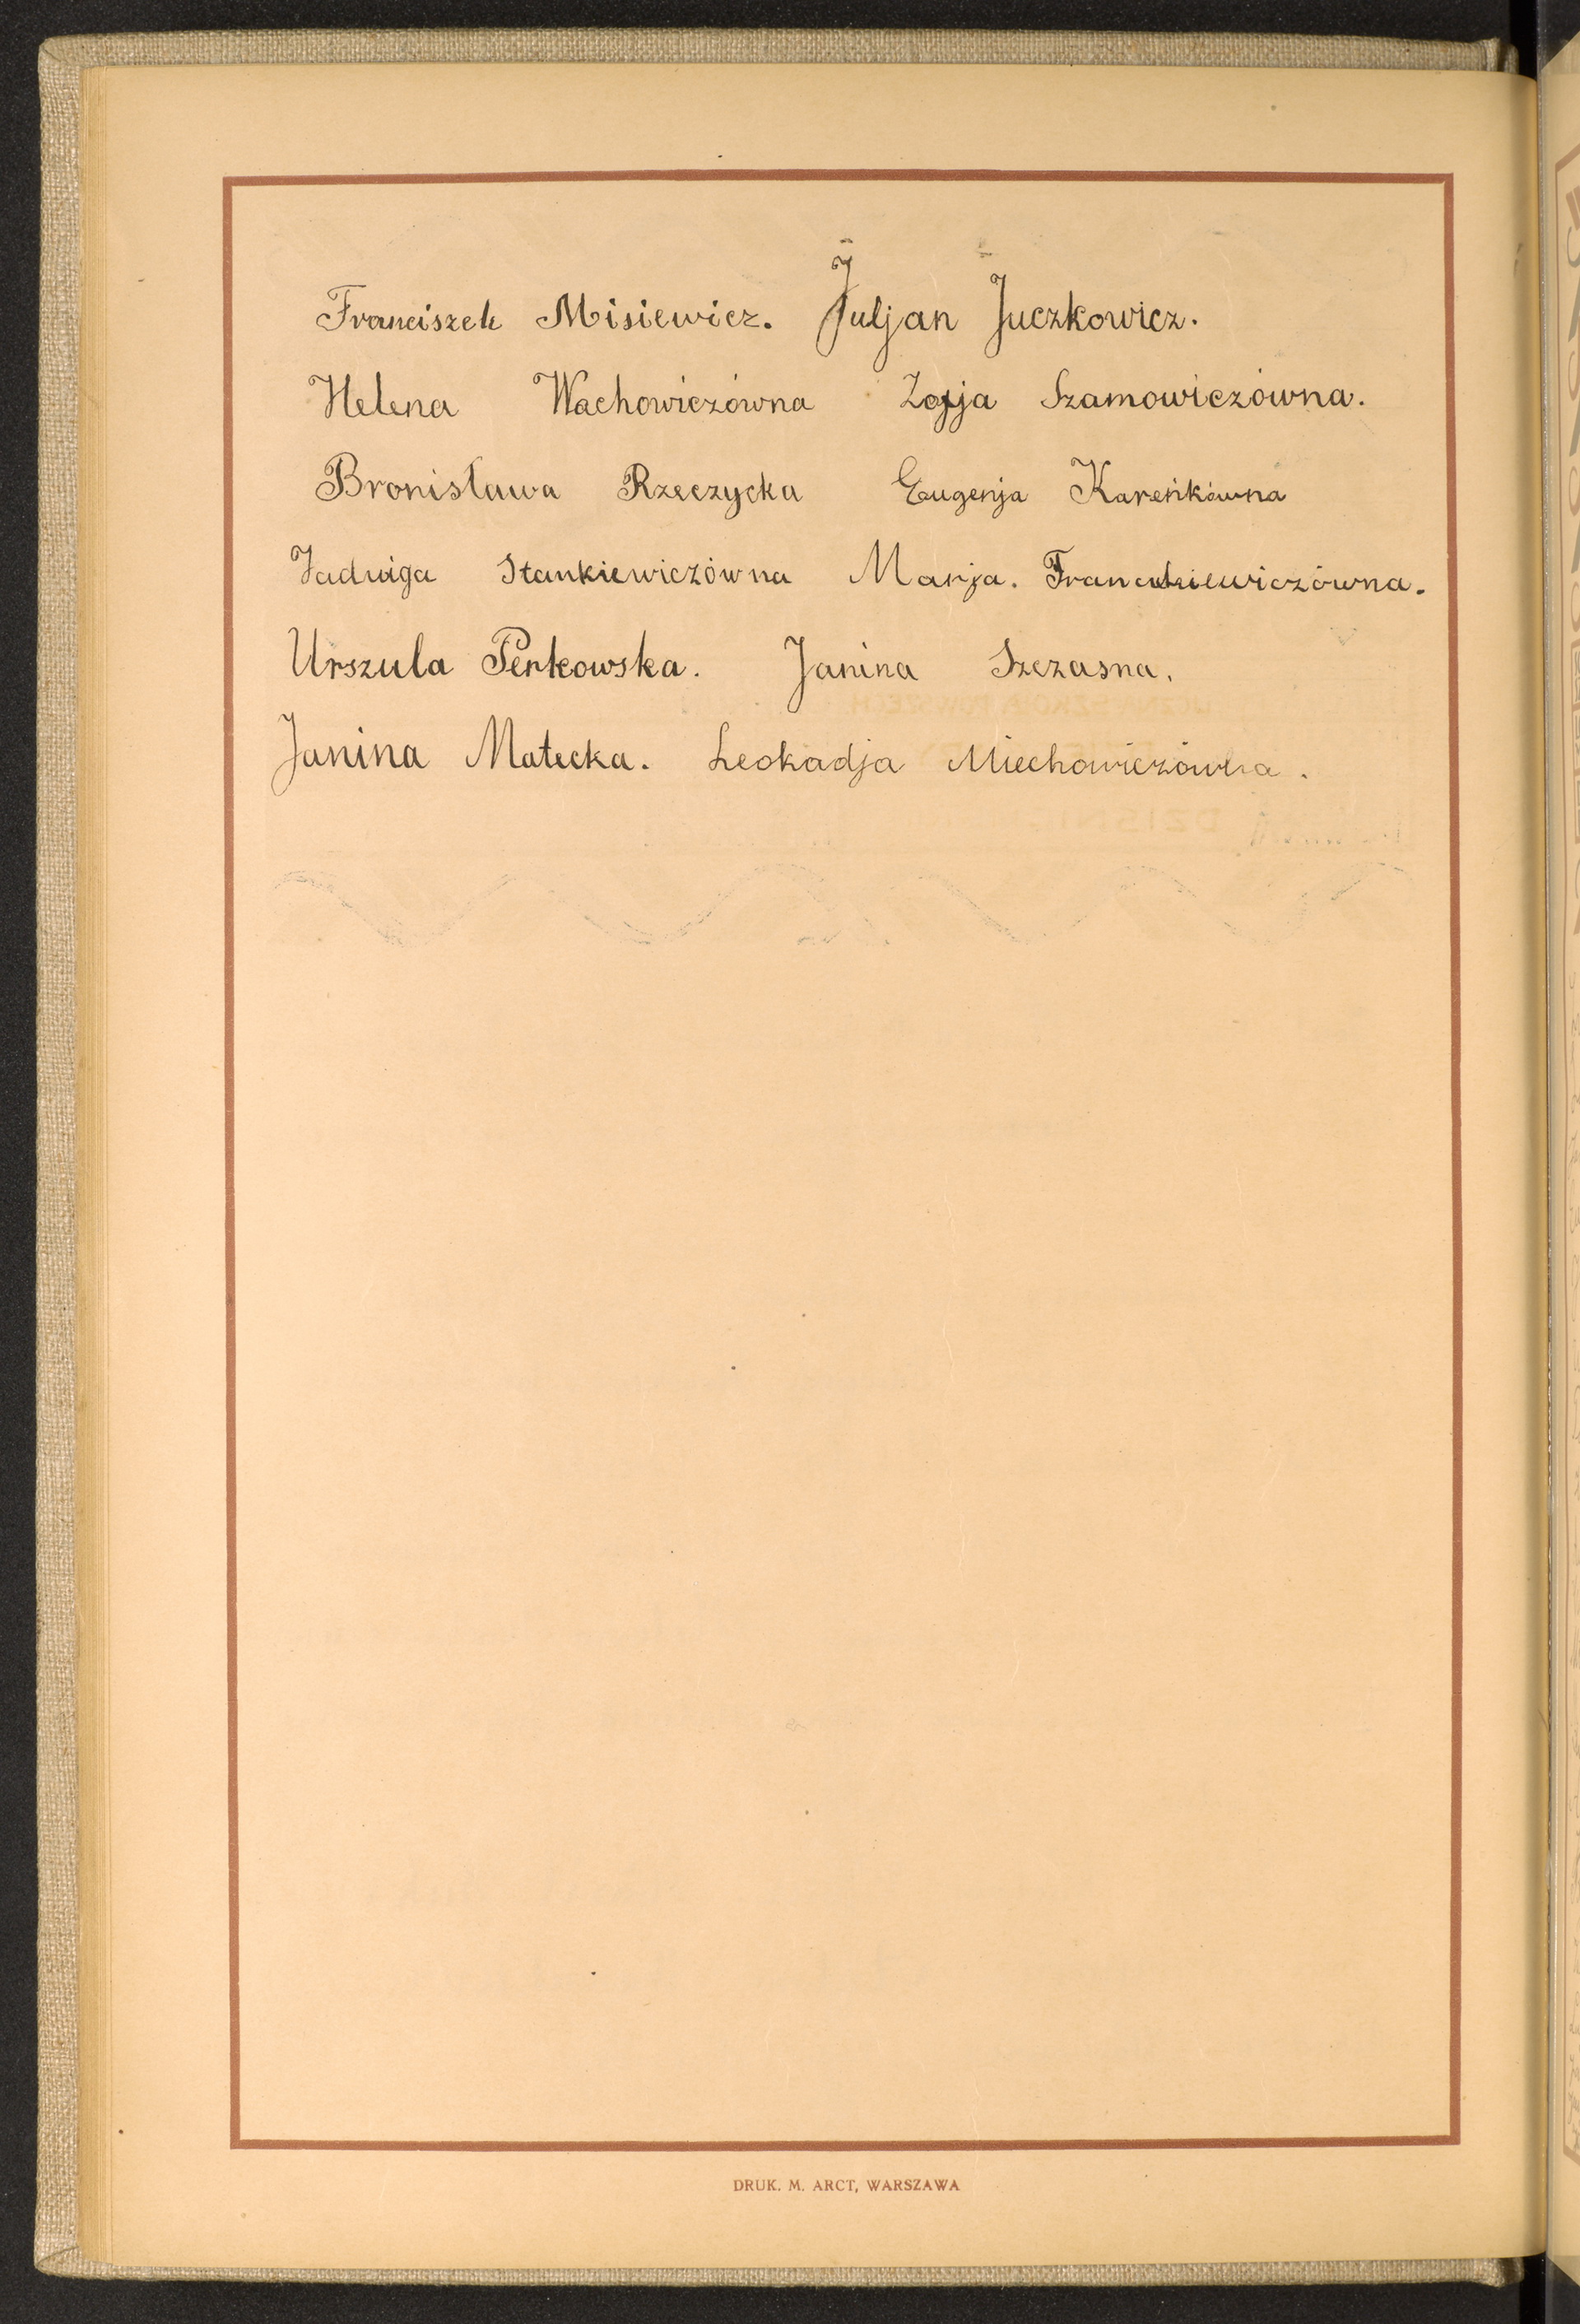 Franciszek Misiewicz. Juljan Juczkowicz.
Helena Wachowiczówna Zofja Szamowiczówna.
Bronisława Rzeczycka Eugenja Kareńkówna
Jadwiga Stankiewiczówna Marja. Francukiewiczówna.
Urszula Perkowska. Janina Szczasna.
Janina Matecka. Leokadja Miechowiczówna.
DRUK. M. ARCT, WARSZAWA